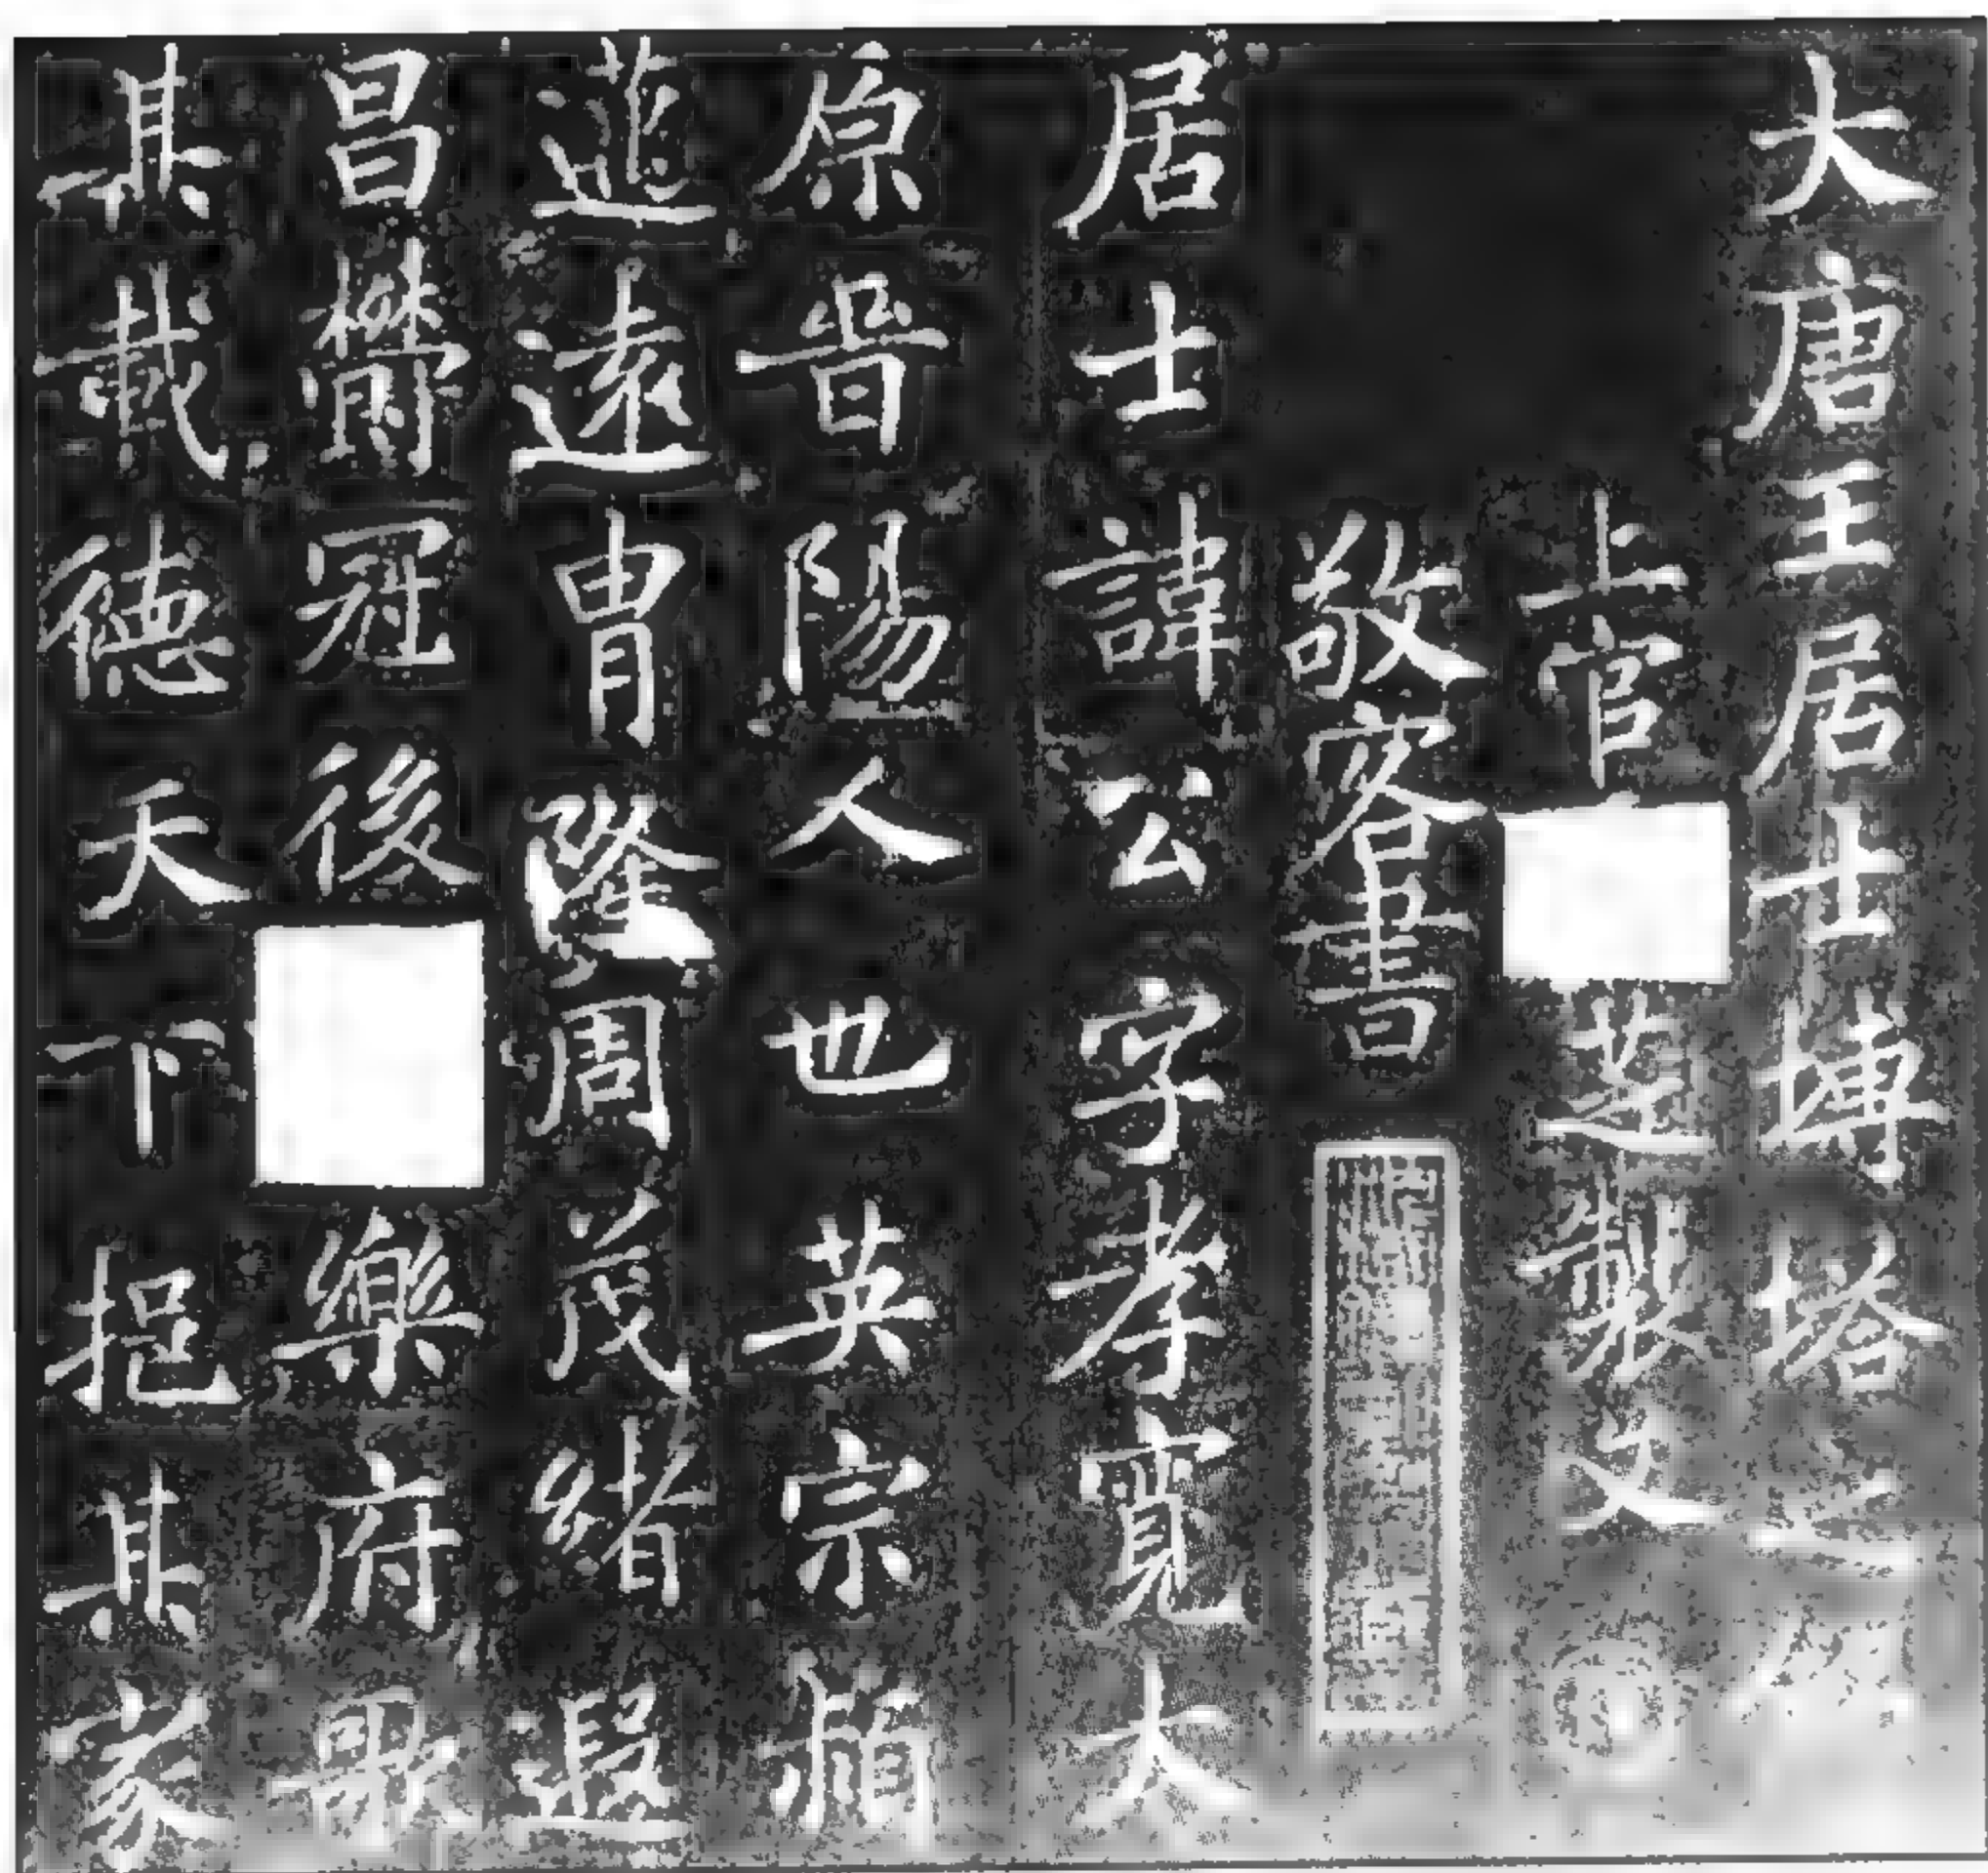 大唐王居士塼塔之
上官芝製文
敬客書
居士諱公字孝寬太
原晉陽人也英宗穎
邁遠冑隆周茂緒遐
昌鬱冠後樂府歌
其載德天下挹其家